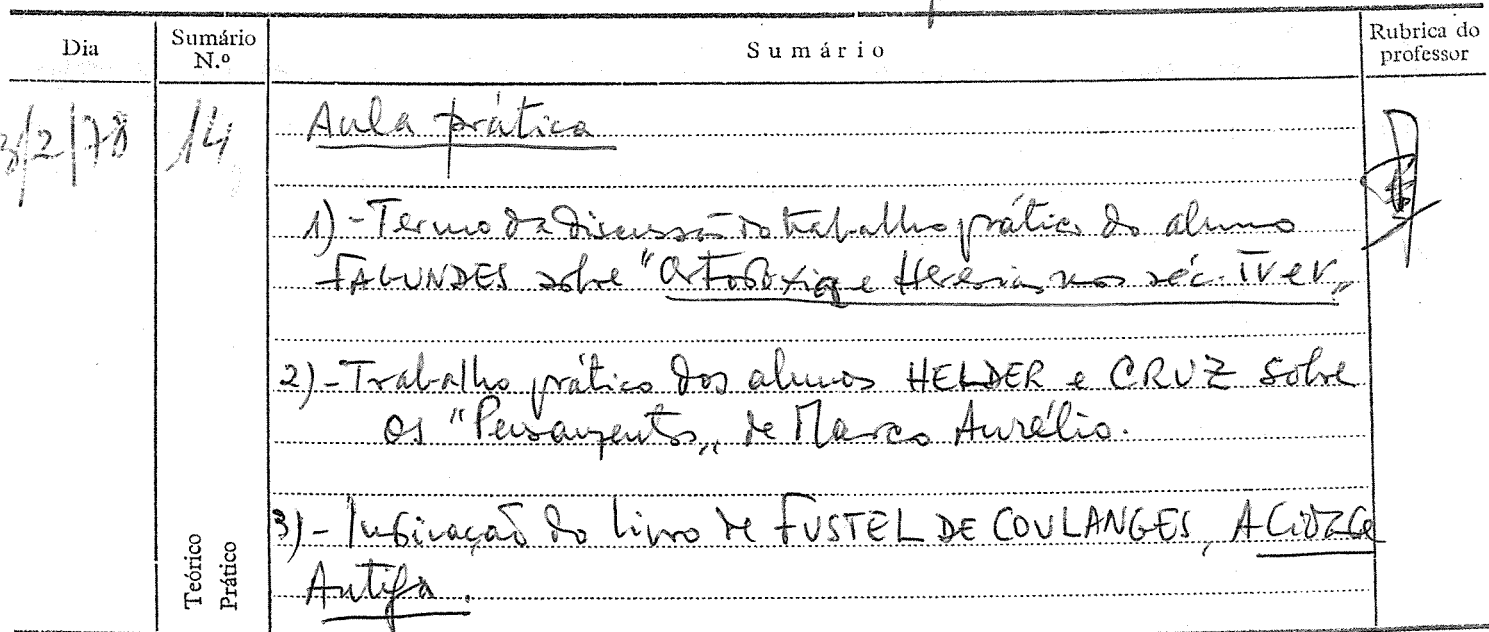 Dia
Sumário
N.º
Sumário
Rubrica do
professor
3/2/78
14
Aula prática
1) - Termo da discussão do trabalho prático do aluno
FAGUNDES sobre "Ortodoxia e Heresias nos séc. IV e V"
2) - Trabalho prático dos alunos HELDER e CRUZ sobre
os "Pensamentos" de Marco Aurélio.
3) - Indicação do livro de FUSTEL DE COULANGES, A Cidade
Antiga.
Teórico
Prático